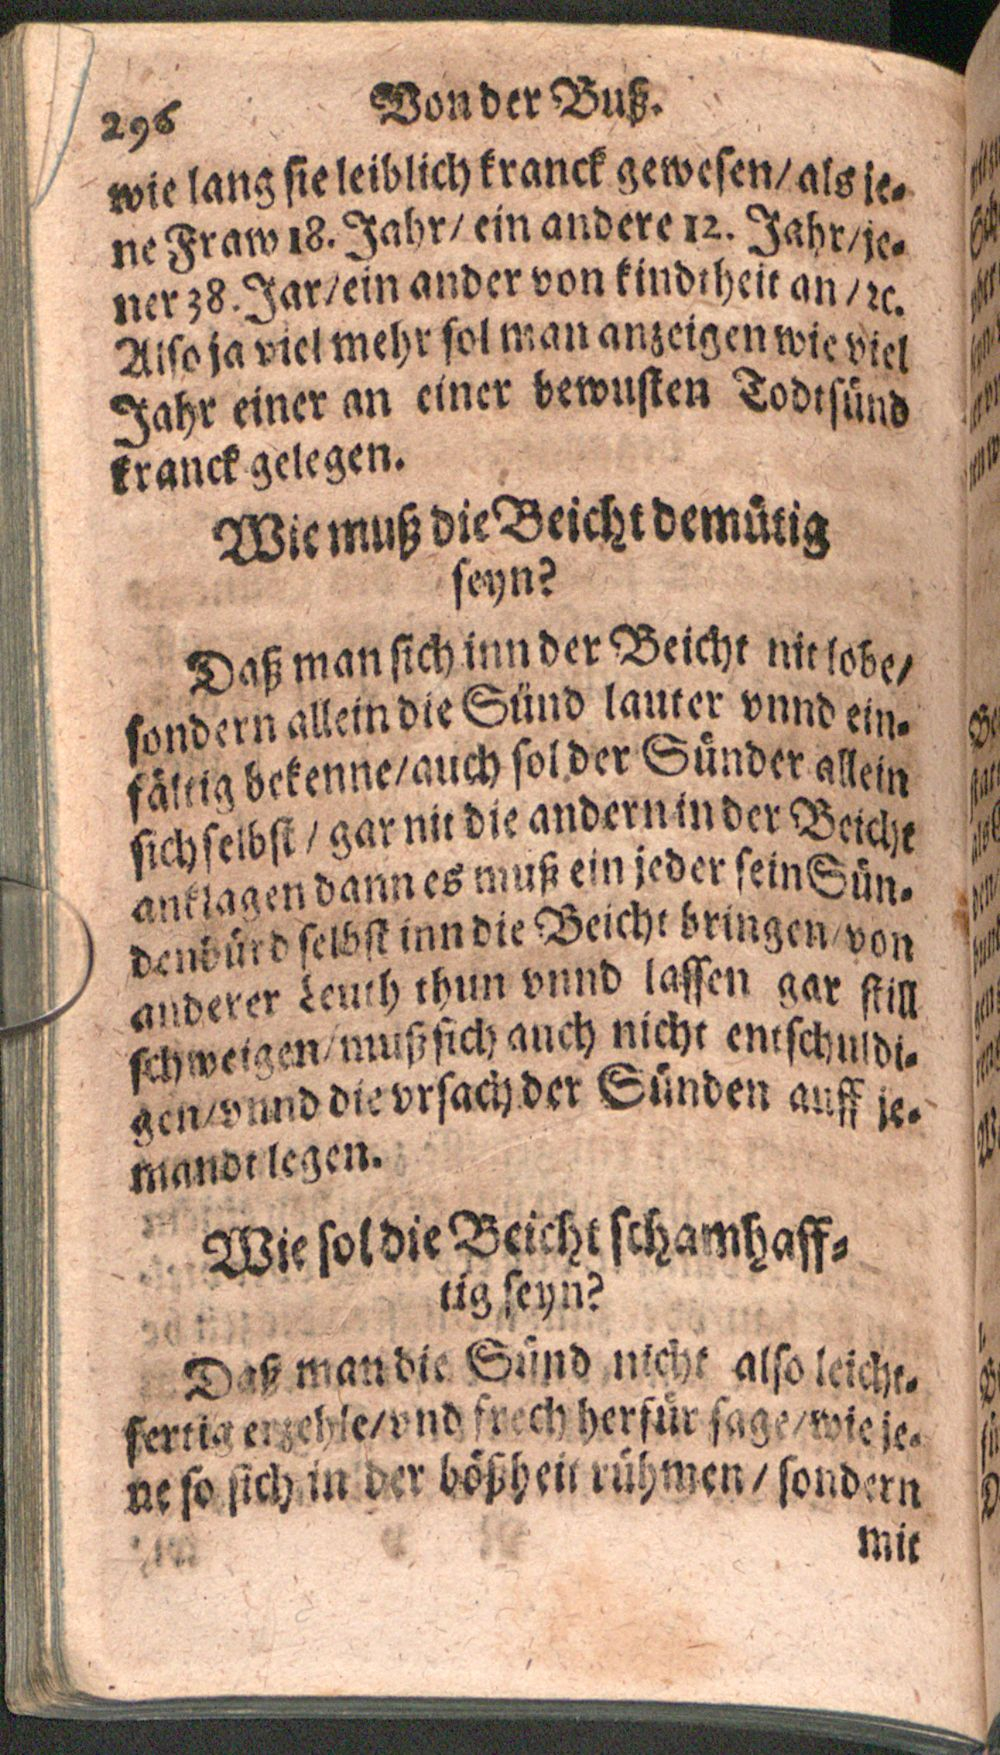 296 Von der Buß.
wie lang sie leiblich kranck gewesen/ als je-
ne Fraw 18. Jahr/ ein andere 12. Jahr/ je-
ner 38. Jar/ ein ander von kindtheit an/ ꝛc.
Also ja viel mehr sol man anzeigen wie viel
Jahr einer an einer bewusten Todtsünd
kranck gelegen.
Wie muß die Beicht demütig
seyn?
Daß man sich inn der Beicht nit lobe/
sondern allein die Sünd lauter vnnd ein-
fältig bekenne/ auch sol der Sünder allein
sich selbst/ gar nit die andern in der Beicht
anklagen dann es muß ein jeder sein Sün-
denbürd selbst inn die Beicht bringen/ von
anderer Leuth thun vnnd lassen gar still
schweigen/ muß sich auch nicht entschuldi-
gen/ vnnd die vrsach der Sünden auff je-
mandt legen.
Wie sol die Beicht schamhaff-
tig seyn?
Daß man die Sünd nicht also leicht-
fertig erzehle/ vnd frech herfür sage/ wie je-
ne so sich in der bößheit rühmen/ sondern
mit